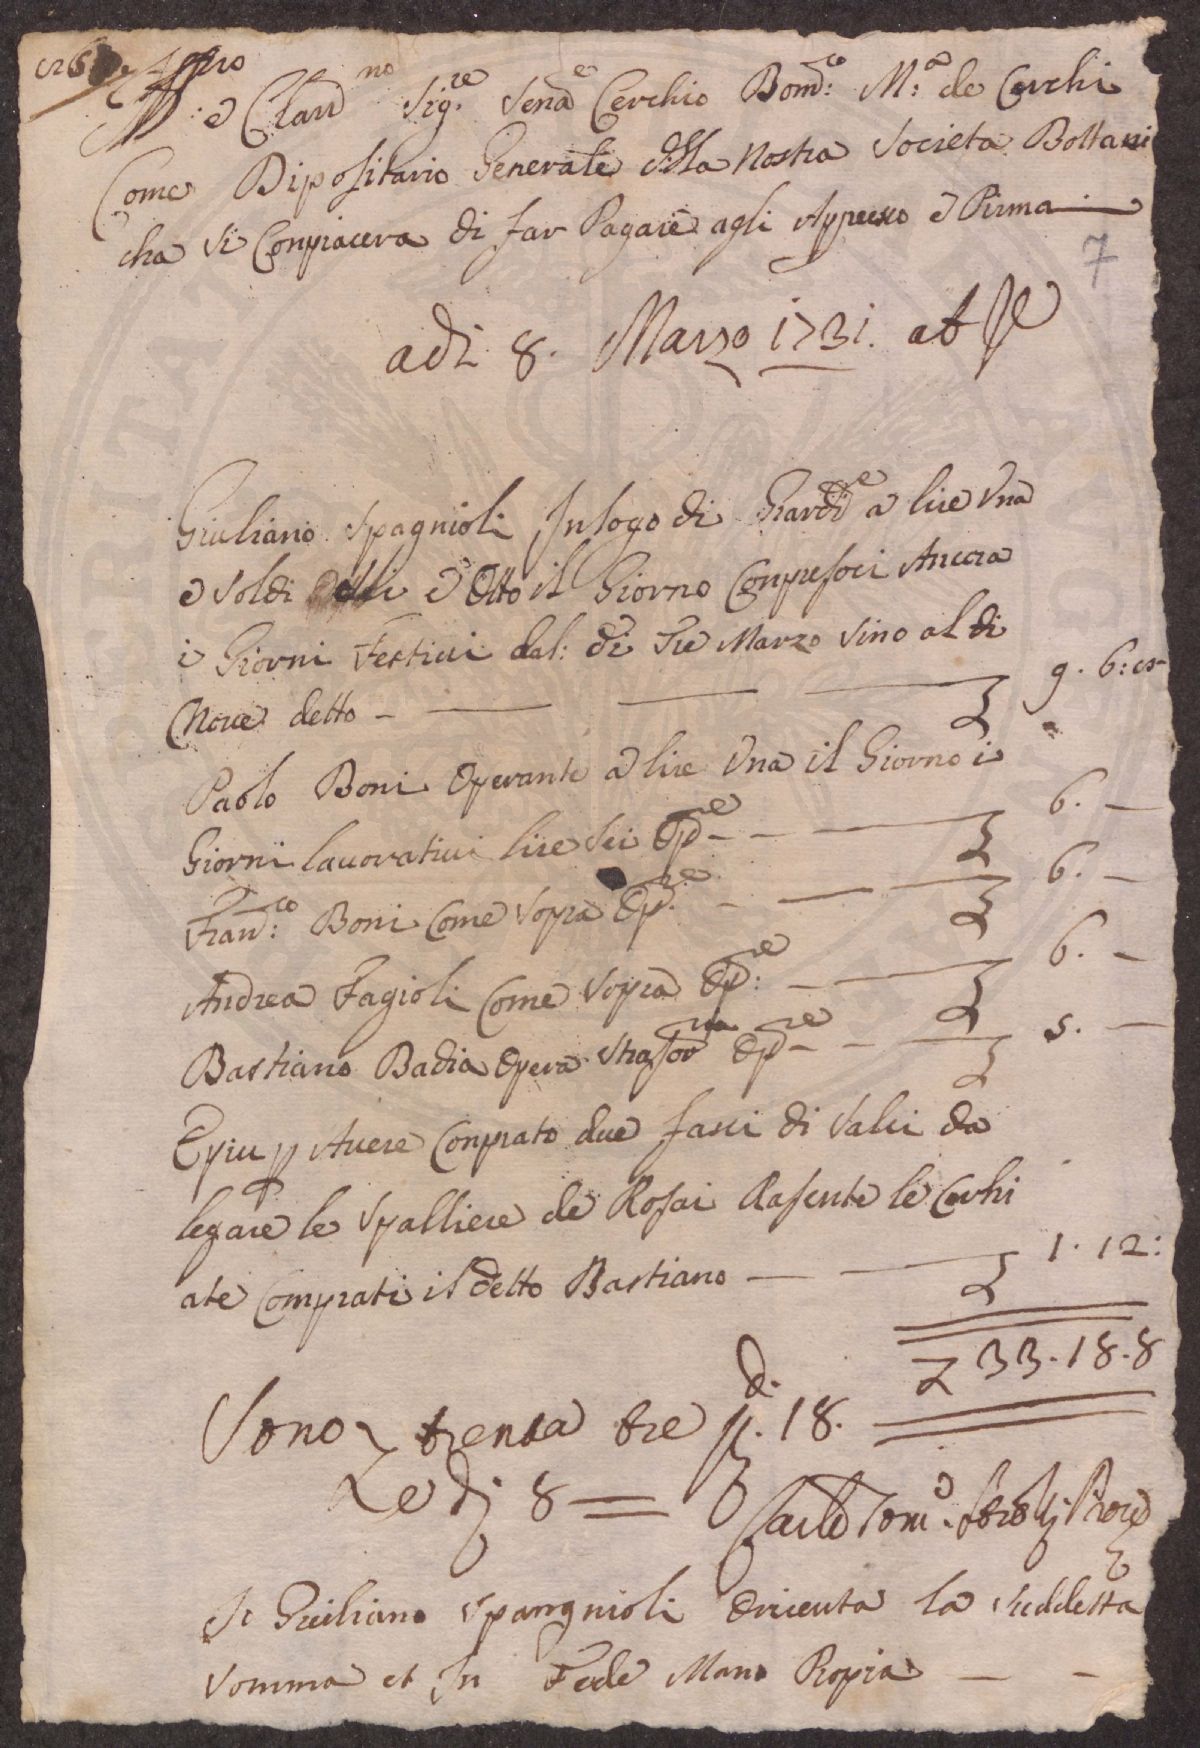 Ill.mo
e Clar.mo Sig.re Sena.e Cerchio Bom.co M.a de Cerchi
Come Dipositario Generale della Nostra Societa Bottani
cha Si Conpiacera di far Pagare agli Appresso e Pirma
7
adi 8. Marzo 1731. ab
Giuliano Spagnioli In logo di Giard.e a lire Una
e Soldi e Otto il Giorno Conpresoci Ancora
i Giorni Festiui dal: di Tre Marzo Sino al di
Noue detto - 9. 6:
Paolo Boni Operante a lire Una il Giorno i
Giorni lauoratiui lire Sei Op.re - 6. -
Fran.co Boni Come Sopra Op.re - 6. -
Andrea Fagioli Come Sopra Op.re - 6. -
Bastiano Badia Opera Op.re - 5. -
E piu p Auere Conprato due fasci di Salci da
legare le Spalliere de Rosai Rasente le Cerchi
ate Comprati il detto Bastiano - 1. 12:
33.18.8
Sono trenta tre 18.
e d 8 =
Carlo Tom.o
Io Giuliano Spangnioli Oriceuta la Suddetta
Somma et In Fede Mano Propia - -